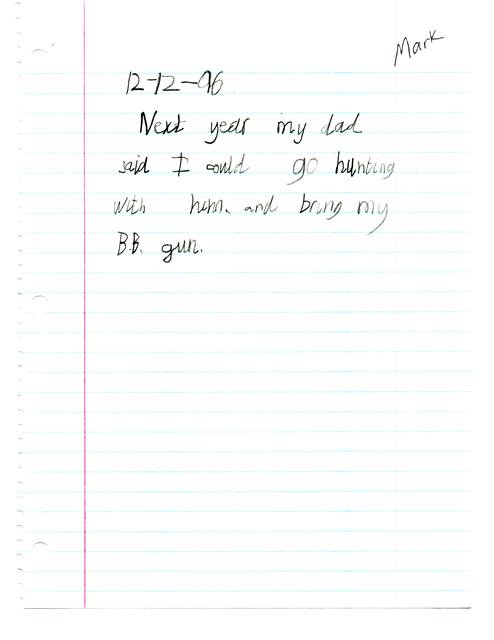 Mark
12-12-96
Next year my dad
said I could go hunting
with him. and bring my
B.B. gun.